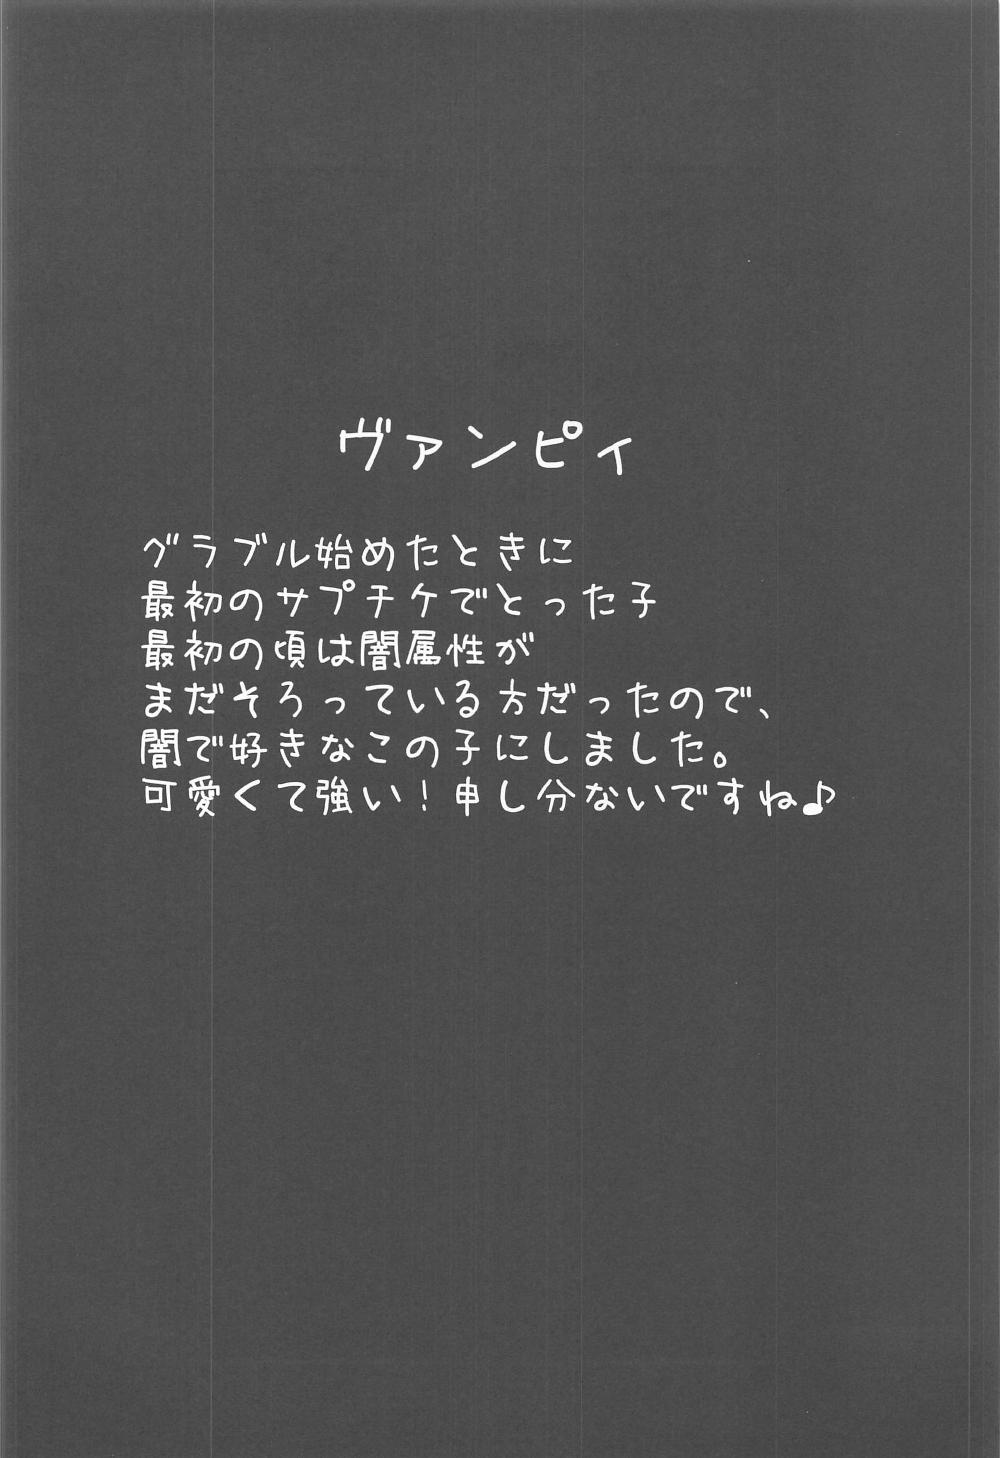 ヴァンピィ
グラブル始めたときに
最初のサプチケでとった子
最初の頃は闇属性が
まだそろっている方だったので、
闇で好きなこの子にしました。
可愛くて強い！申し分ないですね♪